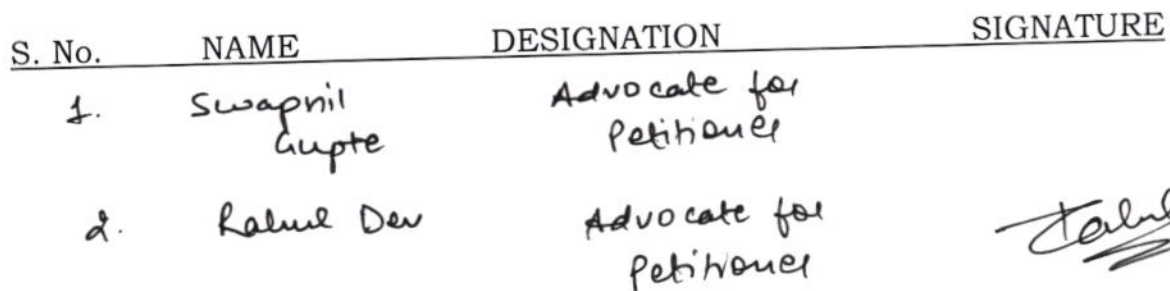 S. No. NAME DESIGNATION SIGNATURE
1. Swapnil Advocate for
Gupte Petitioner
2. Rahul Dev Advocate for
Petitioner